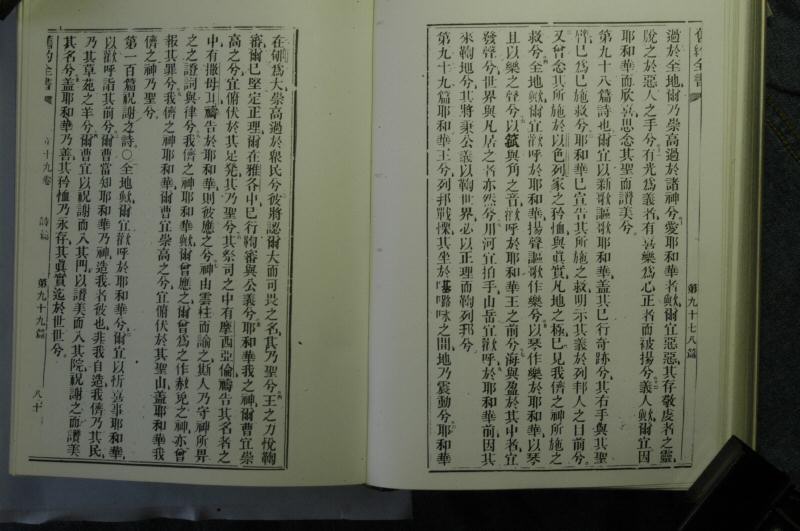 舊約全書
第九十七八篇
過於全地爾乃崇高過於諸神兮愛耶和華者歟爾宜惡惡其存敬虔者之靈
脫之於惡人之手兮有光為義者有喜樂為心正者而被揚兮義人歟爾宜因
耶和華而欣喜思念其聖而讚美兮
第九十八篇詩也爾宜以新歌謳歌耶和華蓋其已行奇跡兮其右手與其聖
臂已為已施救兮耶和華已宣告其所施之救明示其義於列邦人之目前兮
又曾念其所施於以色列家之矜恤與真實凡地之極已見我儕之神所施之
救兮全地歟爾宜歡呼於耶和華揚聲謳歌作樂兮以琴作樂於耶和華以琴
且以樂之聲兮以號與角之音歡呼於耶和華王之前兮海與盈於其中者宜
發聲兮世界與凡居之者亦然兮川河宜拍手山岳宜歡呼於耶和華前因其
來鞫地兮其將秉公義以鞫世界必以正理而鞫列邦兮
第九十九篇耶和華王兮列邦戰慄其坐於𠼻𡀔𠯿之間地乃震動兮耶和華
在郇為大崇高過於眾民兮彼將認爾大而可畏之名其乃聖兮王之力悅鞫
審爾已堅定正理爾在雅各中已行鞫審與公義兮耶和華我之神爾曹宜崇
高之兮宜俯伏於其足凳其乃聖兮其祭司之中有摩西亞倫禱告其名者之
中有撒母耳禱告於耶和華則彼應之兮神由雲柱而諭之斯人乃守神所畀
之之證詞與律兮我儕之神耶和華歟爾曾應之爾曾為之作赦免之神亦曾
報其罪兮我儕之神耶和華爾曹宜崇高之兮宜俯伏於其聖山蓋耶和華我
儕之神乃聖兮
第一百篇祝謝之詩〇全地歟爾宜歡呼於耶和華兮爾宜以忻喜事耶和華
以歡呼詣其前兮爾曹當知耶和華乃神造我者彼也非我自造我儕乃其民
乃其草苑之羊兮爾曹宜以祝謝而入其門以讚美而入其院祝謝之而讚美
其名兮蓋耶和華乃善其矜恤乃永存其真實迄於世世兮
舊約全書
十九卷
詩篇
第九十九篇
八十